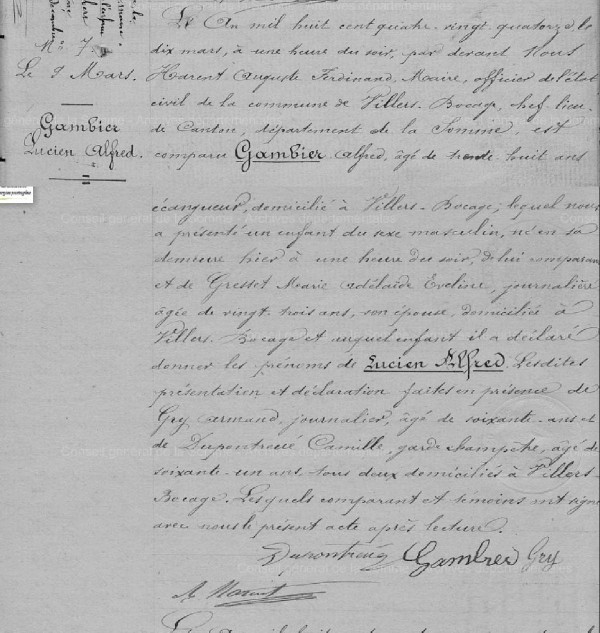 Nº 7
Le 9 Mars.
Gambier
Lucien Alfred.
L'An mil huit cent quatre-vingt quatorze, le
dix mars, à une heure du soir, par devant Nous
Harent Auguste Ferdinand, Maire, officier de l'état
civil de la commune de Villers-Bocage, chef-lieu
de Canton, département de la Somme, est
comparu Gambier Alfred, âgé de trente huit ans
écangueur, domicilié à Villers-Bocage; lequel nous
a présenté un enfant du sexe masculin, né en sa
demeure hier à une heure du soir, de lui comparant
et de Gresset Marie Adélaïde Eveline, journalière
âgée de vingt-trois ans, son épouse, domiciliés à
Villers-Bocage et auquel enfant il a déclaré
donner les prénoms de Lucien Alfred. Lesdites
présentation et déclaration faites en présence de
Gry Armand, journalier, âgé de soixante-ans et
de Dupontreué Camille, garde champêtre, âgé de
soixante-un ans tous deux domiciliés à Villers-
Bocage. Lesquels comparant et témoins ont signé
avec nous le présent acte après lecture.
Gambier Gry
A. Harent